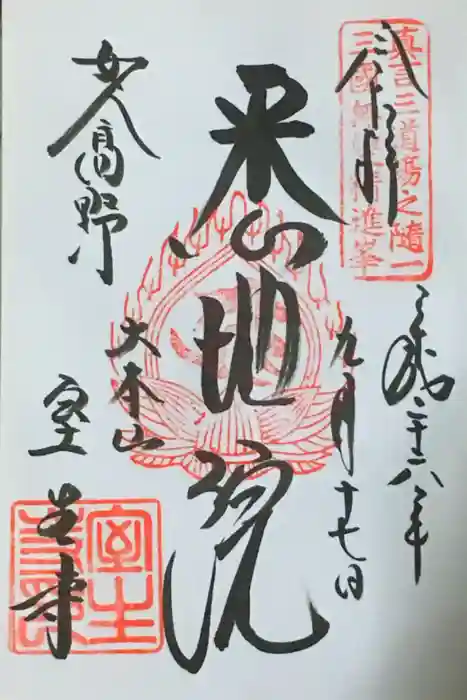 奉拝
真言三道場之隨一
平成二十八年
九月十七日
悉地院
大本山
女人高野
室生寺
室生